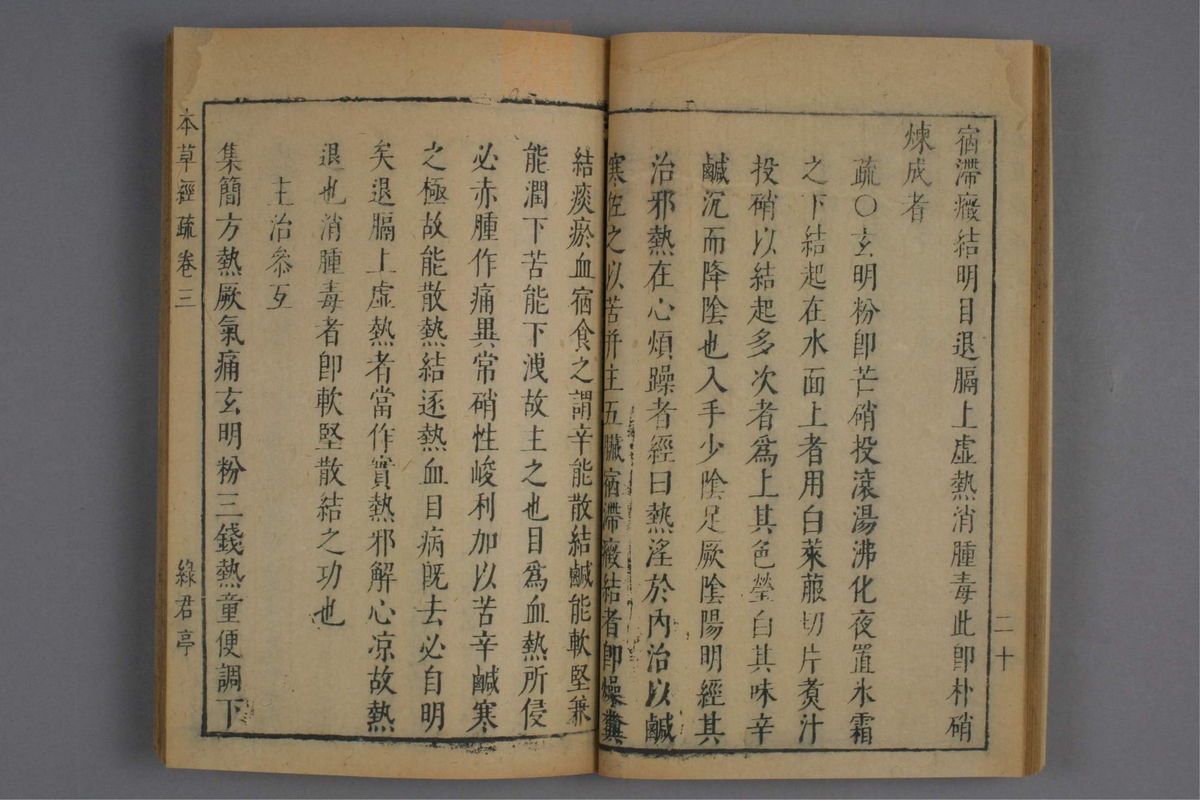 宿滯癥結明目退膈上虛熱消腫毒此卽朴硝
煉成者
疏○玄明粉卽芒硝投滾湯沸化夜置氷霜
之下結起在水面上者用白萊菔切片煑汁
投硝以結起多次者爲上其色瑩白其味辛
鹹沉而降陰也入手少陰足厥陰陽明經其
治邪熱在心煩躁者經曰熱淫於內治以鹹
寒佐之以苦幷主五臟宿滯癥結者卽燥糞
結痰瘀血宿食之謂辛能散結鹹能軟堅兼
能潤下苦能下洩故主之也目爲血熱所侵
必赤腫作痛異常硝性峻利加以苦辛鹹寒
之極故能散熱結逐熱血目病旣去必自明
矣退膈上虛熱者當作實熱邪解心凉故熱
退也消腫毒者卽軟堅散結之功也
主治叅互
集簡方熱厥氣痛玄明粉三錢熱童便調下
二十
本草經疏卷三
綠君亭